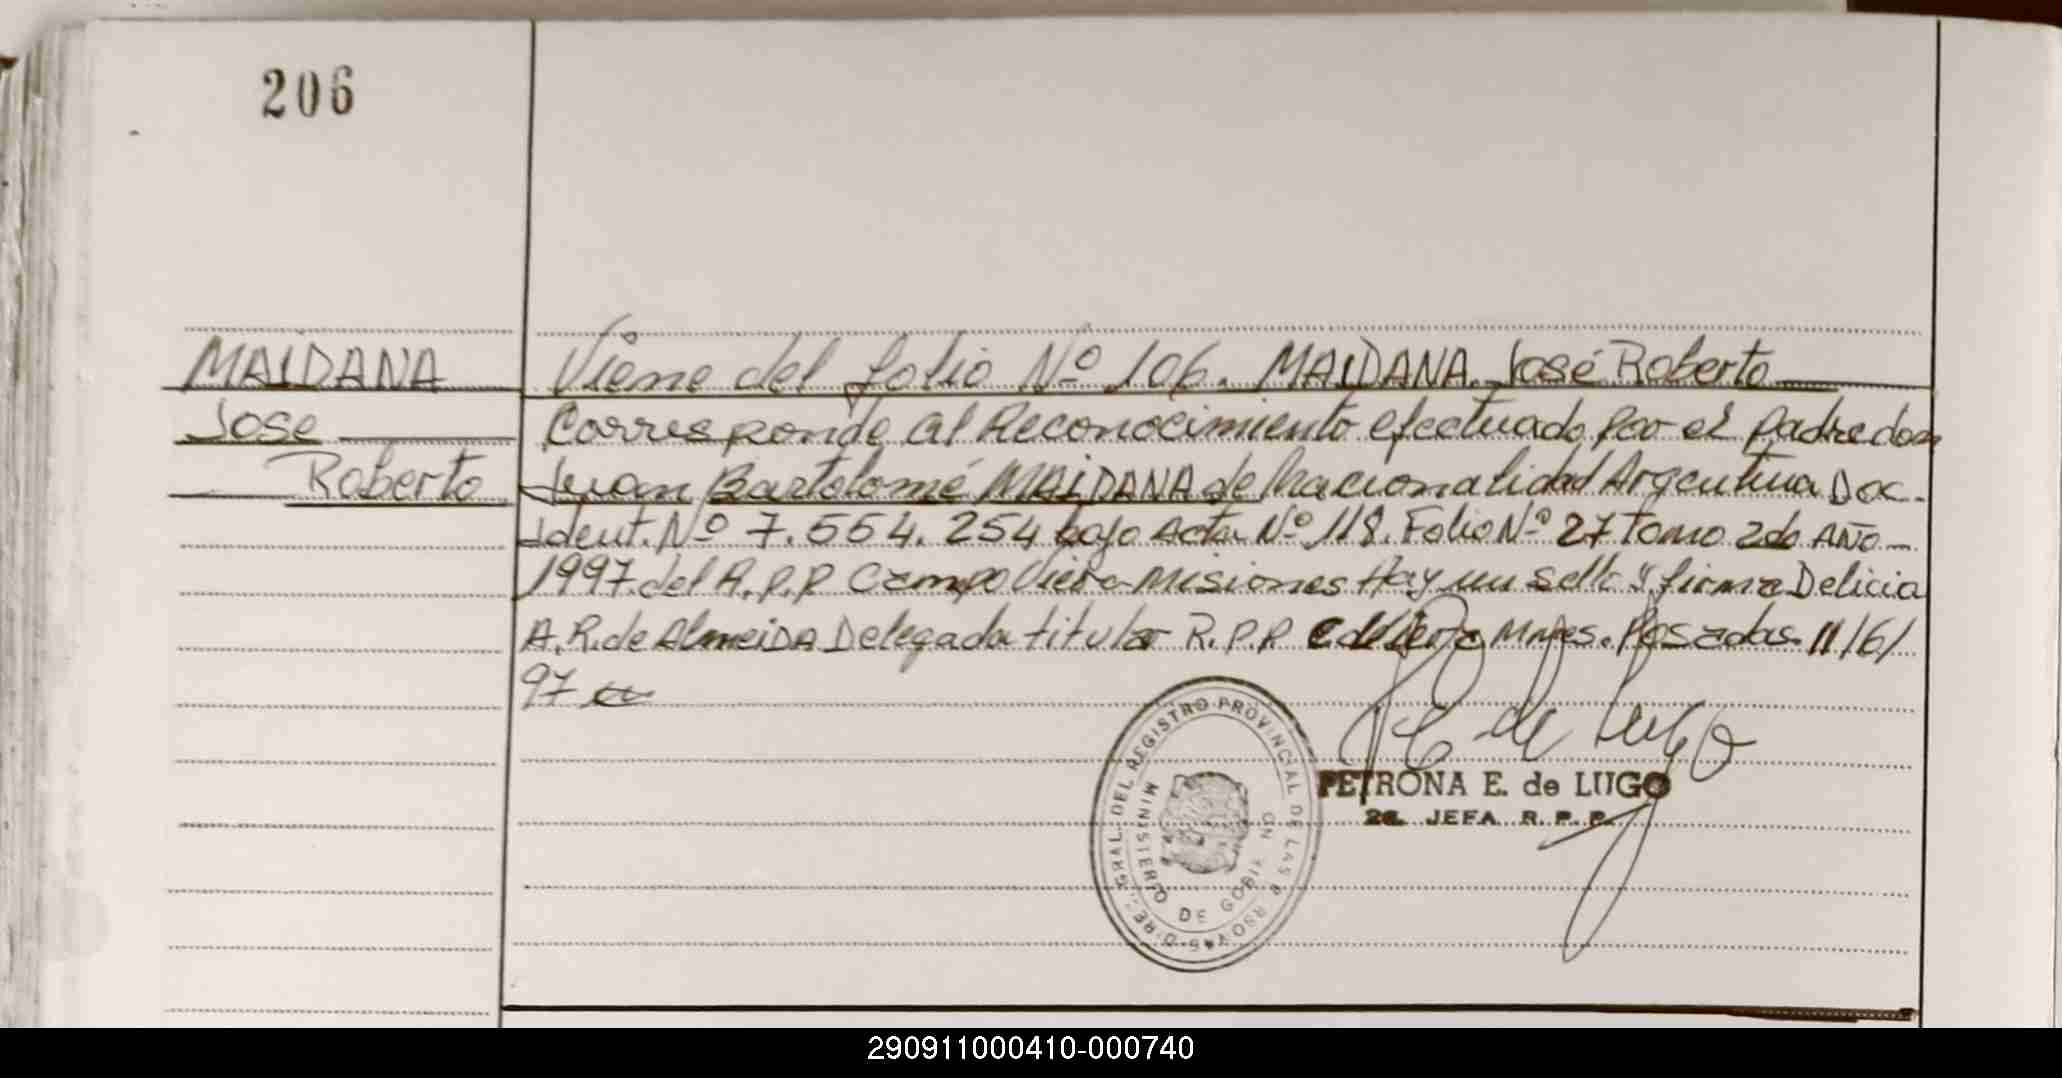 206
MAIDANA
Jose
Roberto
Viene del folio Nº 106. MAIDANA José Roberto
Corresponde al Reconocimiento efectuado por el padre don
Juan Bartolomé MAIDANA de Nacionalidad Argentina Doc.
Ident. Nº 7.554.254 bajo Acta Nº 118. Folio Nº 27 Tomo 2do AÑO
1997 del R.P.P Campo Viera-Misiones Hay un sello y firma Delicia
A. R. de AlmeiDA Delegada titular R.P.P. Mnes. Posadas 11/6/
97
P E de Lugo
PETRONA E. de LUGO
JEFA R. P. P.
GRAL. DEL REGISTRO PROVINCIAL DE LAS
MINISTERIO DE
290911000410-000740